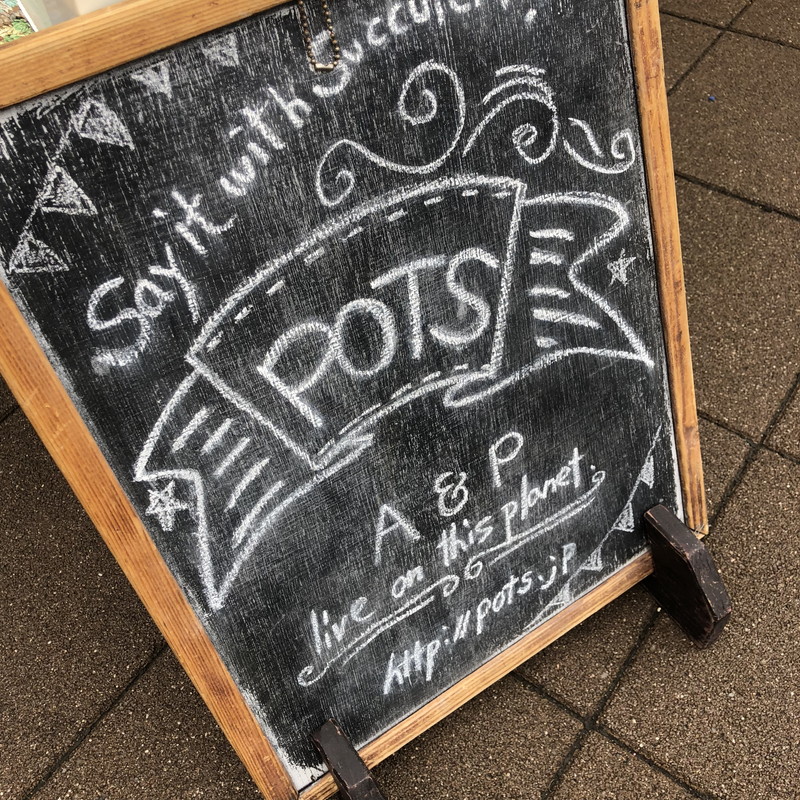 Say it with
POTS
A & P
live on this planet.
http://pots.jp